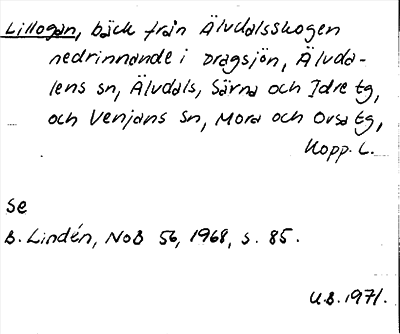 Lillogan, bäck från Älvdalsskogen
nedrinnande i Dragsjön, Älvda-
lens sn, Älvdals, Särna och Idre tg,
och Venjans sn, Mora och Orsa tg,
Kopp. L.
Se
B. Lindén, NoB 56, 1968, s. 85.
U.B. 1971.